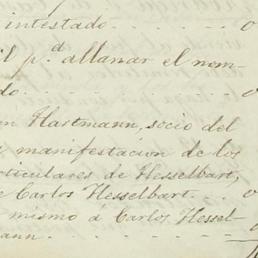 intestado
il p.ª allanar el nom-
do
n Hartmann, socio del
manifestacion de los
ticulares de Hesselbart,
e Carlos Hesselbart
mismo á Carlos Hessel-
mann